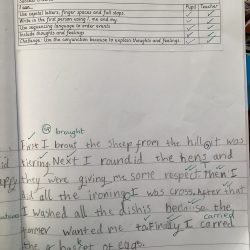 I can... Pupil Teacher
Use capital letters, finger spaces and full stops.
Write in the first person using I, me and my.
Use sequencing language to order events
Include thoughts and feelings
Challenge: Use the conjunction because to explain thoughts and feelings
brought
First I brout the sheep from the hill it was
Next I round the hens and
they were giving me some respect then I
did all the ironing I was cross. After that
I washed all the dishis because the
wanted me to Finaly I carred
carried
the basket of eggs.